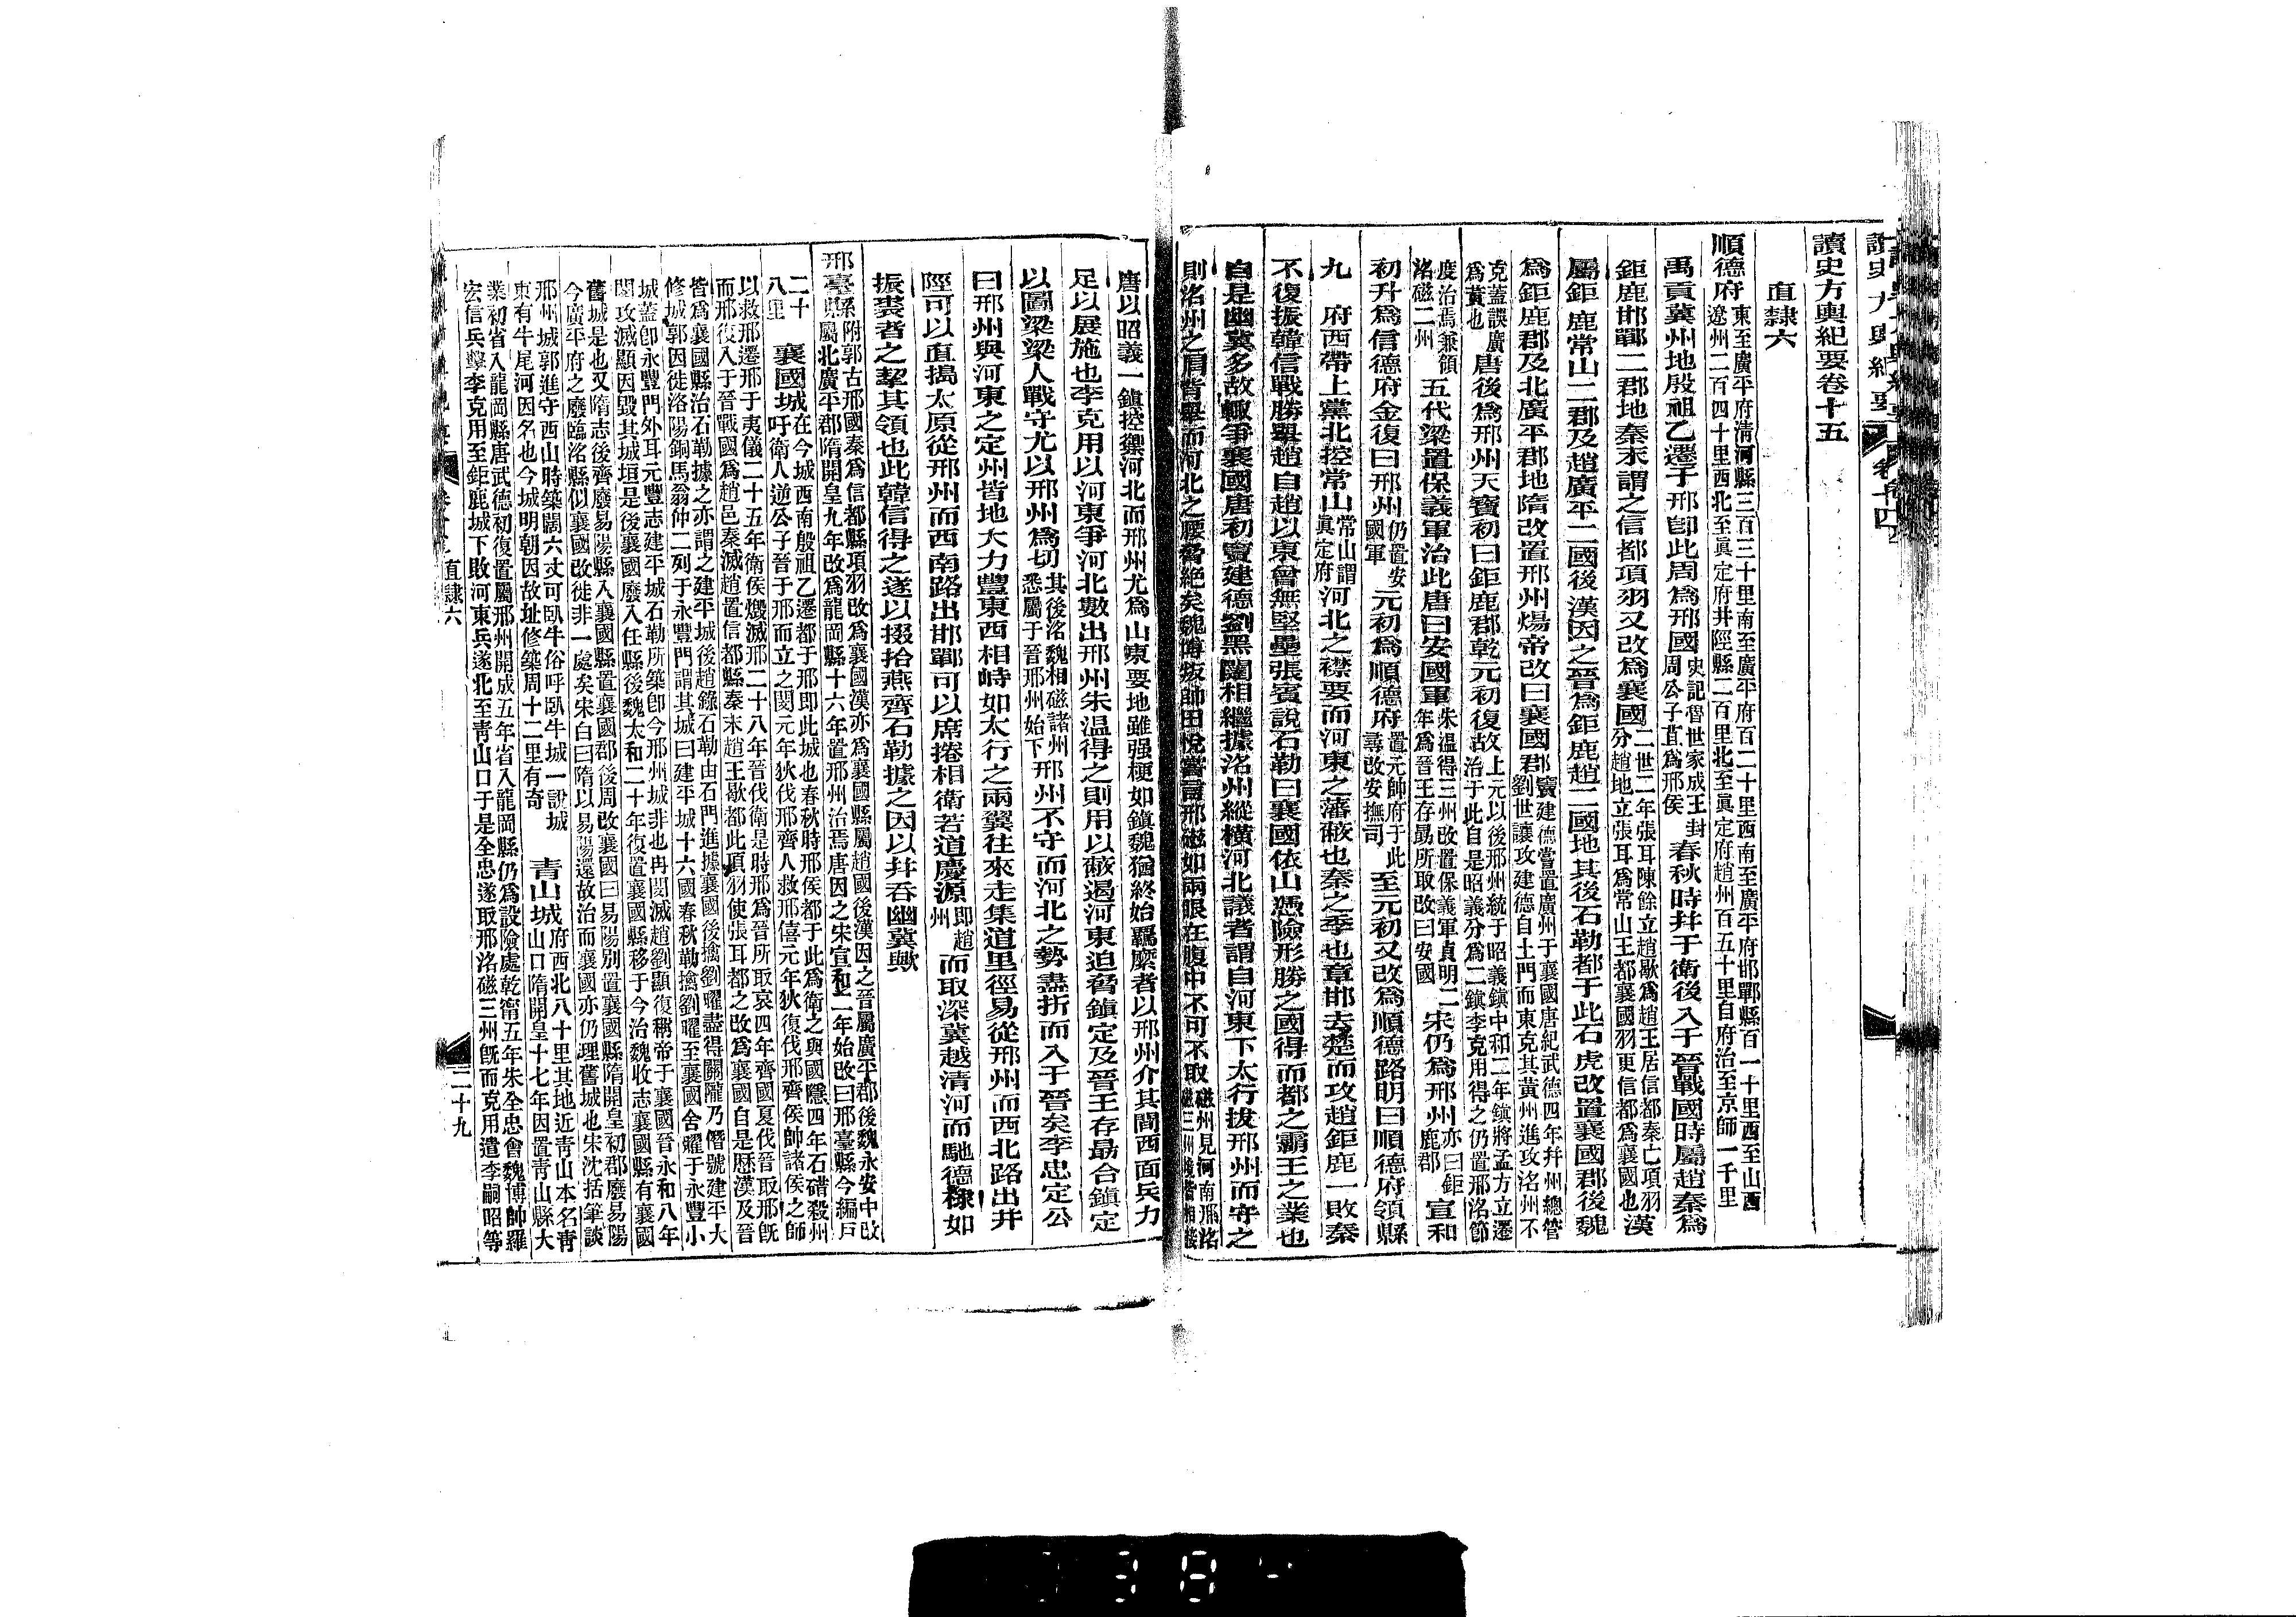 讀史方輿紀要卷十五
直隸六
順德府東至廣平府清河縣三百三十里南至廣平府百二十里西南至廣平府邯鄲縣百一十里西至山西
遼州二百四十里西北至真定府井陘縣二百里北至真定府趙州百五十里自府治至京師一千里
禹貢冀州地殷祖乙遷于邢卽此周爲邢國史記魯世家成王封
周公子苴爲邢侯春秋時幷于衛後入于晉戰國時屬趙秦爲
鉅鹿邯鄲二郡地秦末謂之信都項羽又改爲襄國二世二年張耳陳餘立趙歇爲趙王居信都秦亡項羽
分趙地立張耳爲常山王都襄國羽更信都爲襄國也漢
屬鉅鹿常山二郡及趙廣平二國後漢因之晉爲鉅鹿趙二國地其後石勒都于此石虎改置襄國郡後魏
爲鉅鹿郡及北廣平郡地隋改置邢州煬帝改曰襄國郡竇建德嘗置廣州于襄國唐紀武德四年幷州總管
劉世讓攻建德自土門而東克其黃州進攻洺州不
克蓋誤廣
爲黃也唐後爲邢州天寶初曰鉅鹿郡乾元初復故上元以後邢州統于昭義鎮中和二年鎮將孟方立遷
治于此自是昭義分爲二鎮李克用得之仍置邢洺節
度治焉兼領
洺磁二州五代梁置保義軍治此唐曰安國軍朱溫得三州改置保義軍貞明二
年爲晉王存勗所取改曰安國宋仍爲邢州亦曰鉅
鹿郡宣和
初升爲信德府金復曰邢州仍置安
國軍元初爲順德府置元帥府于此
尋改安撫司至元初又改爲順德路明曰順德府領縣
九府西帶上黨北控常山常山謂
真定府河北之襟要而河東之藩蔽也秦之季也章邯去楚而攻趙鉅鹿一敗秦
不復振韓信戰勝舉趙自趙以東曾無堅壘張賓說石勒曰襄國依山憑險形勝之國得而都之霸王之業也
自是幽冀多故輒爭襄國唐初竇建德劉黑闥相繼據洺州縱橫河北議者謂自河東下太行拔邢州而守之
則洺州之肩背舉而河北之腰脊絕矣魏博叛帥田悅嘗言邢磁如兩眼在腹中不可不取磁州見河南邢洺
唐以昭義一鎮控禦河北而邢州尤爲山東要地雖强梗如鎮魏猶終始羈縻者以邢州介其間西面兵力
足以展施也李克用以河東爭河北數出邢州朱溫得之則用以蔽遏河東迫脅鎮定及晉王存勗合鎮定
以圖梁梁人戰守尤以邢州爲切其後洺魏相磁諸州
悉屬于晉邢州始下邢州不守而河北之勢盡折而入于晉矣李忠定公
曰邢州與河東之定州皆地大力豐東西相峙如太行之兩翼往來走集道里徑易從邢州而西北路出井
陘可以直搗太原從邢州而西南路出邯鄲可以席捲相衛若道慶源卽趙
州而取深冀越清河而馳德棣如
振裘者之挈其領也此韓信得之遂以掇拾燕齊石勒據之因以幷吞幽冀歟
邢臺縣附郭古邢國秦爲信都縣項羽改爲襄國漢亦爲襄國縣屬趙國後漢因之晉屬廣平郡後魏永安中改
屬北廣平郡隋開皇九年改爲龍岡縣十六年置邢州治焉唐因之宋宣和二年始改曰邢臺縣今編戶
二十
八里襄國城在今城西南殷祖乙遷都于邢卽此城也春秋時邢侯都于此爲衛之與國隱四年石碏殺州
吁衛人逆公子晉于邢而立之閔元年狄伐邢齊人救邢僖元年狄復伐邢齊侯帥諸侯之師
以救邢遷邢于夷儀二十五年衛侯燬滅邢二十八年晉伐衛是時邢爲晉所取哀四年齊國夏伐晉取邢旣
而邢復入于晉戰國爲趙邑秦滅趙置信都縣秦末趙王歇都此項羽使張耳都之改爲襄國自是歷漢及晉
皆爲襄國縣治石勒據之亦謂之建平城後趙錄石勒由石門進據襄國後擒劉曜盡得關隴乃僭號建平大
修城郭因徙洛陽銅馬翁仲二列于永豐門謂其城曰建平城十六國春秋勒擒劉曜至襄國舍曜于永豐小
城蓋卽永豐門外耳元豐志建平城石勒所築卽今邢州城非也冉閔滅趙劉顯復稱帝于襄國晉永和八年
閔攻滅顯因毀其城垣是後襄國廢入任縣後魏太和二十年復置襄國縣移于今治魏收志襄國縣有襄國
舊城是也又隋志後齊廢易陽縣入襄國縣置襄國郡後周改襄國曰易陽別置襄國縣隋開皇初郡廢易陽
今廣平府之廢臨洺縣似襄國改徙非一處矣宋白曰隋以易陽還故治而襄國亦仍理舊城也宋沈括筆談
邢州城郭進守西山時築闊六丈可臥牛俗呼臥牛城一說城
東有牛尾河因名也今城明朝因故址修築周十二里有奇青山城府西北八十里其地近青山本名青
山口隋開皇十七年因置青山縣大
業初省入龍岡縣唐武德初復置屬邢州開成五年省入龍岡縣仍爲設險處乾甯五年朱全忠會魏博帥羅
宏信兵擊李克用至鉅鹿城下敗河東兵遂北至青山口于是全忠遂取邢洺磁三州旣而克用遣李嗣昭等
直隸六
二十九